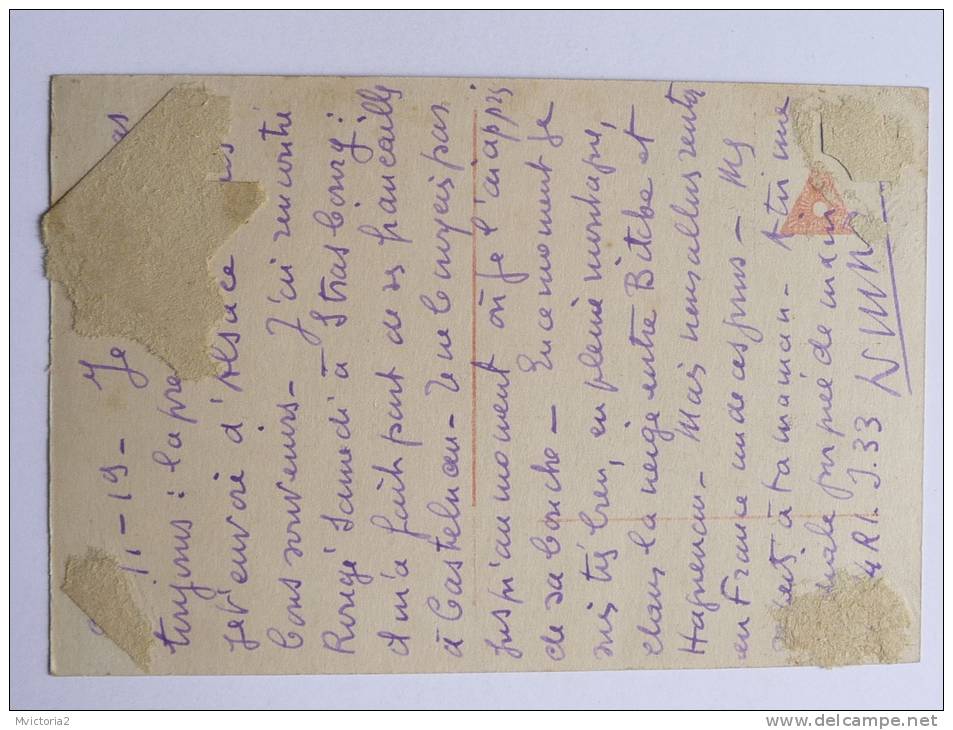 1-19- Je
toujours : la pre
je t'envoie d'Alsace
bons souvenirs- J'ai rencontré
Rougé Samedi à Strasbourg :
il m'a fait part de ses fiançailles
à Castelnau- Je ne le croyais pas
jusqu'au moment où je l'ai appris
de sa bouche - En ce moment je
suis très bien, en pleine montagne,
dans la neige entre Bitche et
Haguenau- Mais nous allons rentrer
en France un de ces jours - Mes
respects à ta maman- A toi une
amicale poignée de main
4 R.I. J.33
Mvictoria2
delcampe.net